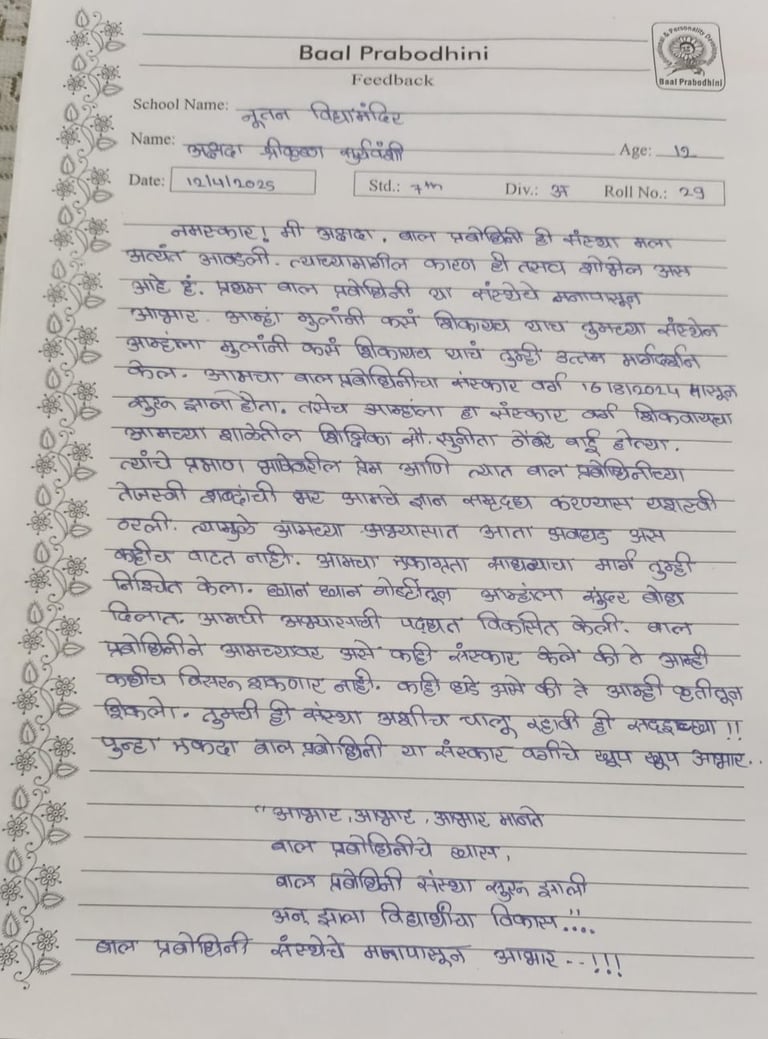 Baal Prabodhini
Feedback
Baal Prabodhini
School Name: नूतन विद्यामंदिर
Name: अक्षदा श्रीकृष्ण सूर्यवंशी
Age: 12
Date: 12/4/2025 Std.: 7th Div.: अ Roll No.: 29
नमस्कार! मी अक्षदा. बाल प्रबोधिनी ही संस्था मला
अत्यंत आवडली. त्याच्यामागील कारण ही तसच शोभेल अस
आहे हं. प्रथम बाल प्रबोधिनी या संस्थेचे मनापासून
आभार. आम्हां मुलांनी कसं शिकायच याच तुमच्या संस्थेन
आम्हांला मुलांनी कसं शिकायच याचं तुम्ही उत्तम मार्गदर्शन
केल. आमचा बाल प्रबोधिनीचा संस्कार वर्ग 16/8/2024 पासून
सुरू झाला होता. तसेच आम्हांला हा संस्कार वर्ग शिकवायचा
आमच्या शाळेतील शिक्षिका सौ. सुनीता ठोंबरे बाई होत्या.
त्यांचे प्रमाण भाषेवरील प्रेम आणि त्यात बाल प्रबोधिनीच्या
तेजस्वी शब्दांची भर आमचे ज्ञान समृद्ध करण्यास यशस्वी
ठरली. त्यामुळे आमच्या अभ्यासात आता अवघड अस
काहीच वाटत नाही. आमचा एकाग्रता साधण्याचा मार्ग तुम्ही
निश्चित केला. छान छान गोष्टीतून आम्हांला सुंदर बोध
दिलात. आमची अभ्यासाची पद्धत विकसित केली. बाल
प्रबोधिनीने आमच्यावर असे काही संस्कार केले की ते आम्ही
कधीच विसरू शकणार नाही. काही धडे असे की ते आम्ही कृतीतून
शिकलो. तुमची ही संस्था अशीच चालू रहावी ही सदइच्छा!!
पुन्हा एकदा बाल प्रबोधिनी या संस्कार वर्गाचे खूप खूप आभार..
"आभार, आभार, आभार मानते
बाल प्रबोधिनीचे ध्यास,
बाल प्रबोधिनी संस्था सुरू झाली
अन् झाला विद्यार्थीचा विकास..."
बाल प्रबोधिनी संस्थेचे मनापासून आभार --!!!